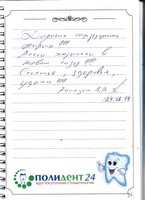 Дорогие сотрудники
Всего хорошего в
Новом году !!!
Счастья, здоровья,
удачи !!!
ПОЛИДЕНТ24
круглосуточная стоматология